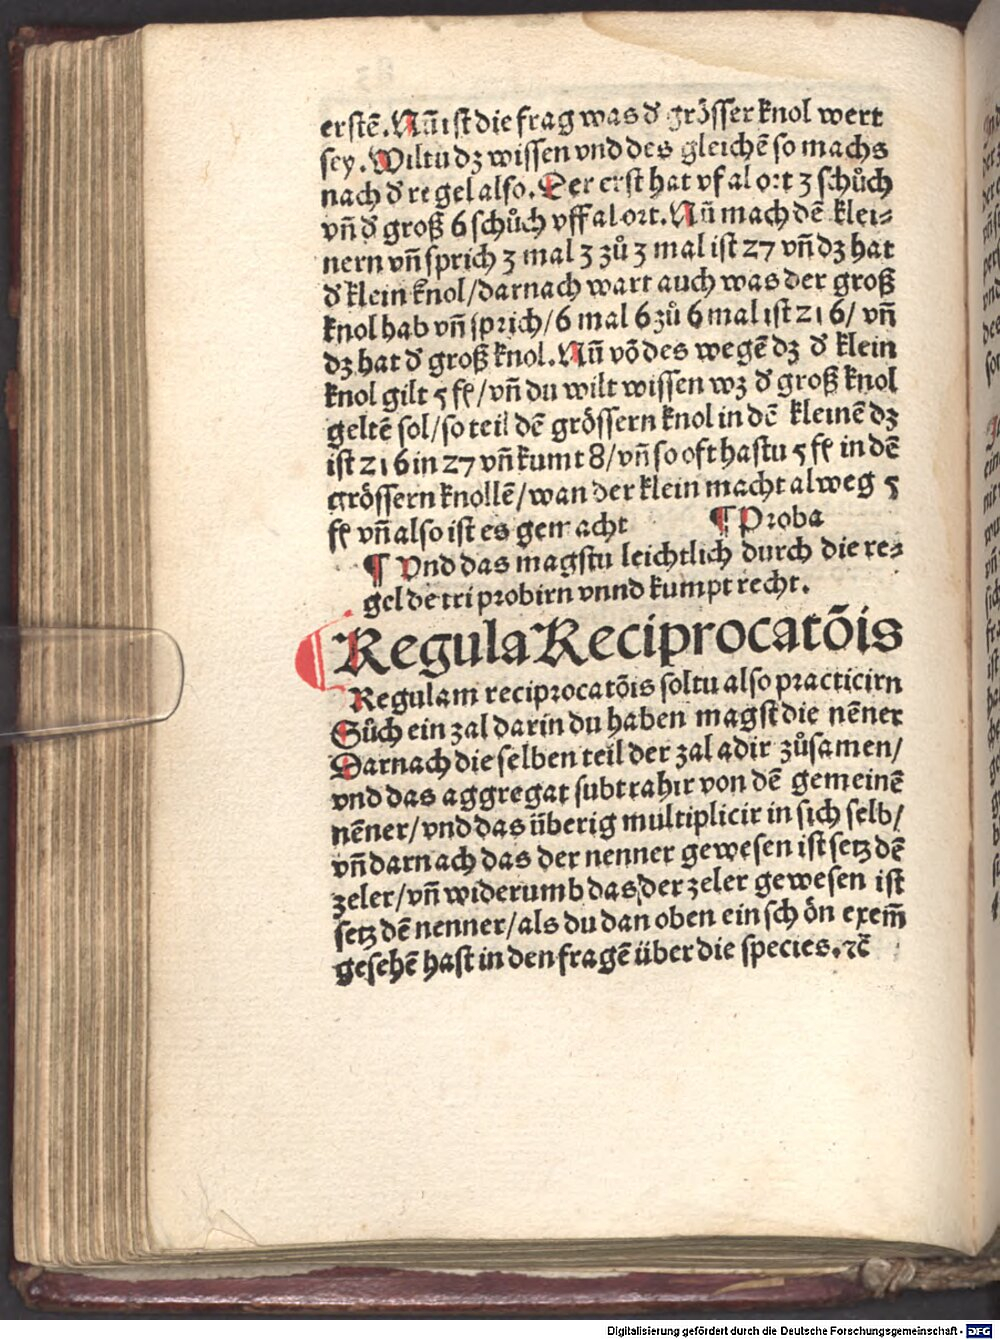 erstē. Nū ist die frag was d̕ grösser knol wert
sey. Wiltu dz wissen vnd des gleichē so machs
nach d̕ regel also. Der erst hat vf al ort 3 schůch
vn̄ d̕ groß 6 schůch vff al ort. Nū mach dē klei⸗
nern vn̄ sprich 3 mal 3 zů 3 mal ist 27 vn̄ dz hat
d̕ klein knol/ darnach wart auch was der groß
knol hab vn̄ sprich/ 6 mal 6 zů 6 mal ist 216/ vn̄
dz hat d̕ groß knol. Nū vō des wegē dz d̕ klein
knol gilt 5 fſ/ vn̄ du wilt wissen wz d̕ groß knol
geltē sol/ so teil dē grössern knol in dē kleinē dz
ist 216 in 27 vn̄ kumt 8/ vn̄ so oft hastu 5 fſ in dē
grössern knollē/ wan der klein macht alweg 5
fſ vn̄ also ist es gemacht ¶ Proba
¶ Vnd das magstu leichtlich durch die re⸗
gel de tri probirn vnnd kumpt recht.
Regula Reciprocatōis
Regulam reciprocatōis soltu also practicirn
Sůch ein zal darin du haben magst die nēner
Darnach die selben teil der zal adir zůsamen/
vnd das aggregat subtrahir von dē gemeinē
nēner/ vnd das überig multiplicir in sich selb/
vn̄ darnach das der nenner gewesen ist setz dē
zeler/ vn̄ widerumb das der zeler gewesen ist
setz dē nenner/ als du dan oben ein schön exem̄
gesehē hast in den fragē über die species. ⁊c̄
Digitalisierung gefördert durch die Deutsche Forschungsgemeinschaft - DFG